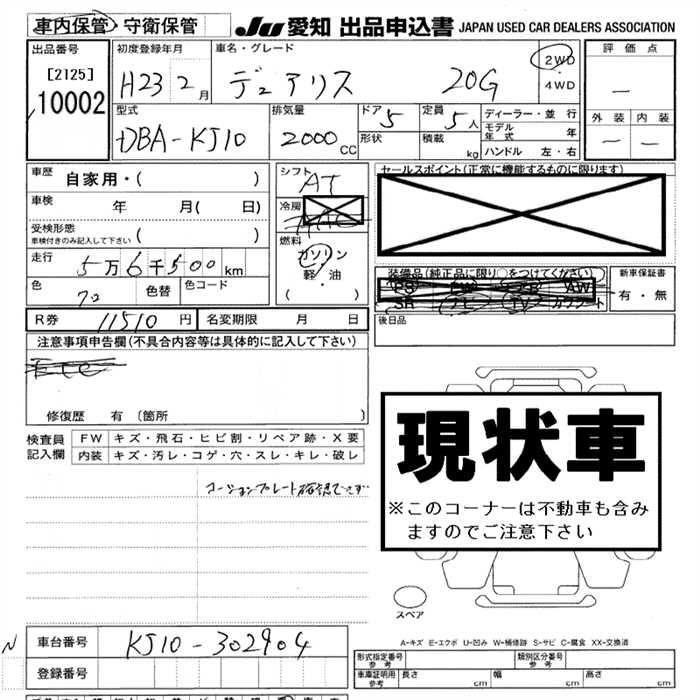 車内保管 守衛保管 JU 愛知 出品申込書 JAPAN USED CAR DEALERS ASSOCIATION
出品番号 [2125] 10002
初度登録年月 H23 2月
車名・グレード デュアリス 20G
2WD・4WD
評価点 ー
外装 ー 内装 ー
型式 DBA-KJ10
排気量 2000CC
ドア 5 定員 5人
形状 積載 kg
ディーラー・並行
モデル年式 年
ハンドル 左・右
車歴 自家用・( )
車検 年 月( 日)
受検形態 車検付きのみ記入して下さい ( )
走行 5万6千500km
色 色替 色コード
シフト AT
冷房
燃料 ガソリン 軽・油 ( )
セールスポイント(正常に機能するものに限ります)
装備品(純正品に限り○をつけてください)
PS PW AW
SR ナビ TV カワシート
新車保証書 有・無
R券 11510円 名変期限 月 日
後日品
注意事項申告欄(不具合内容等は具体的に記入して下さい)
修復歴 有 〔箇所 〕
検査員記入欄 FW キズ・飛石・ヒビ割・リペア跡・X要
内装 キズ・汚レ・コゲ・穴・スレ・キレ・破レ
コーションプレート確認できず
現状車
※このコーナーは不動車も含み
ますのでご注意下さい
スペア
A-キズ E-エクボ U-凹み W-補修跡 S-サビ C-腐食 XX-交換済
N 車台番号 KJ10-302904
登録番号
形式指定番号 参考 類別区分番号 参考
車庫証明用 参考 長さ cm 幅 cm 高さ cm